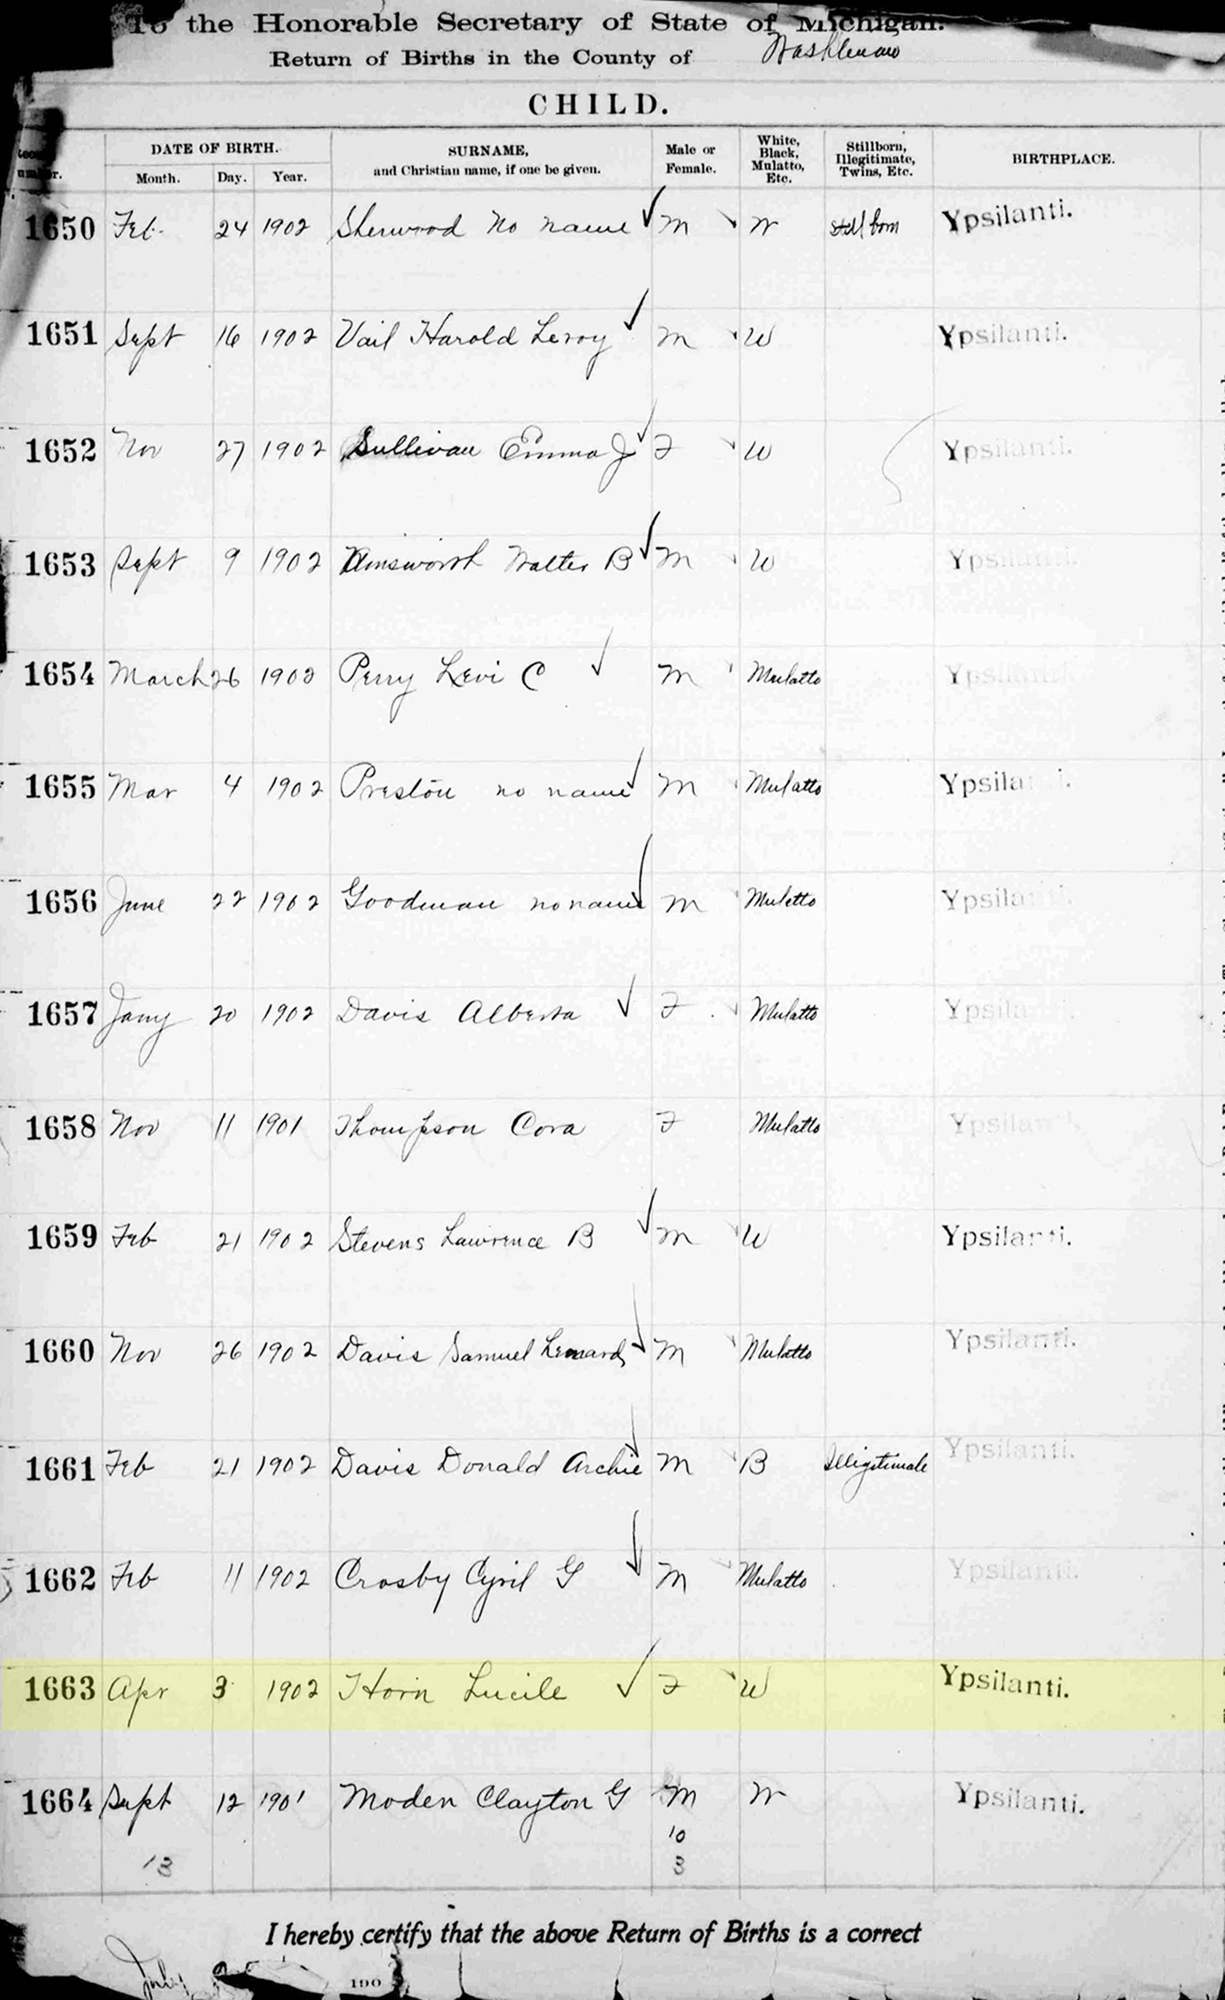 To the Honorable Secretary of State of Michigan.
Return of Births in the County of Washtenaw
CHILD.
DATE OF BIRTH.
Month. Day. Year. SURNAME, and Christian name, if one be given. Male or Female. White, Black, Mulatto, Etc. Stillborn, Illegitimate, Twins, Etc. BIRTHPLACE.
1650 Feb. 24 1902 Sherwood No name M W Still born Ypsilanti.
1651 Sept 16 1902 Vail Harold Leroy M W Ypsilanti.
1652 Nov 27 1902 Sullivan Emma J F W Ypsilanti.
1653 Sept 9 1902 Ainsworth Walter B M W Ypsilanti.
1654 March 26 1902 Perry Levi C M Mulatto Ypsilanti.
1655 Mar 4 1902 Preston no name M Mulatto Ypsilanti.
1656 June 22 1902 Goodman no name M Mulatto Ypsilanti.
1657 Jany 20 1902 Davis Alberta F Mulatto Ypsilanti.
1658 Nov 11 1901 Thompson Cora F Mulatto Ypsilanti.
1659 Feb 21 1902 Stevens Lawrence B M W Ypsilanti.
1660 Nov 26 1902 Davis Samuel Lenard M Mulatto Ypsilanti.
1661 Feb 21 1902 Davis Donald Archie M B Illigitimate Ypsilanti.
1662 Feb 11 1902 Crosby Cyril G M Mulatto Ypsilanti.
1663 Apr 3 1902 Horn Lucile F W Ypsilanti.
1664 Sept 12 1901 Moden Clayton G M W Ypsilanti.
10
13 3
I hereby certify that the above Return of Births is a correct
July 190